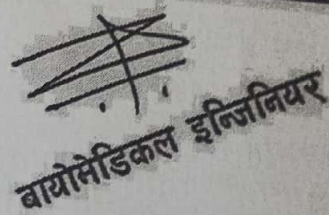 बायोमेडिकल इन्जिनियर